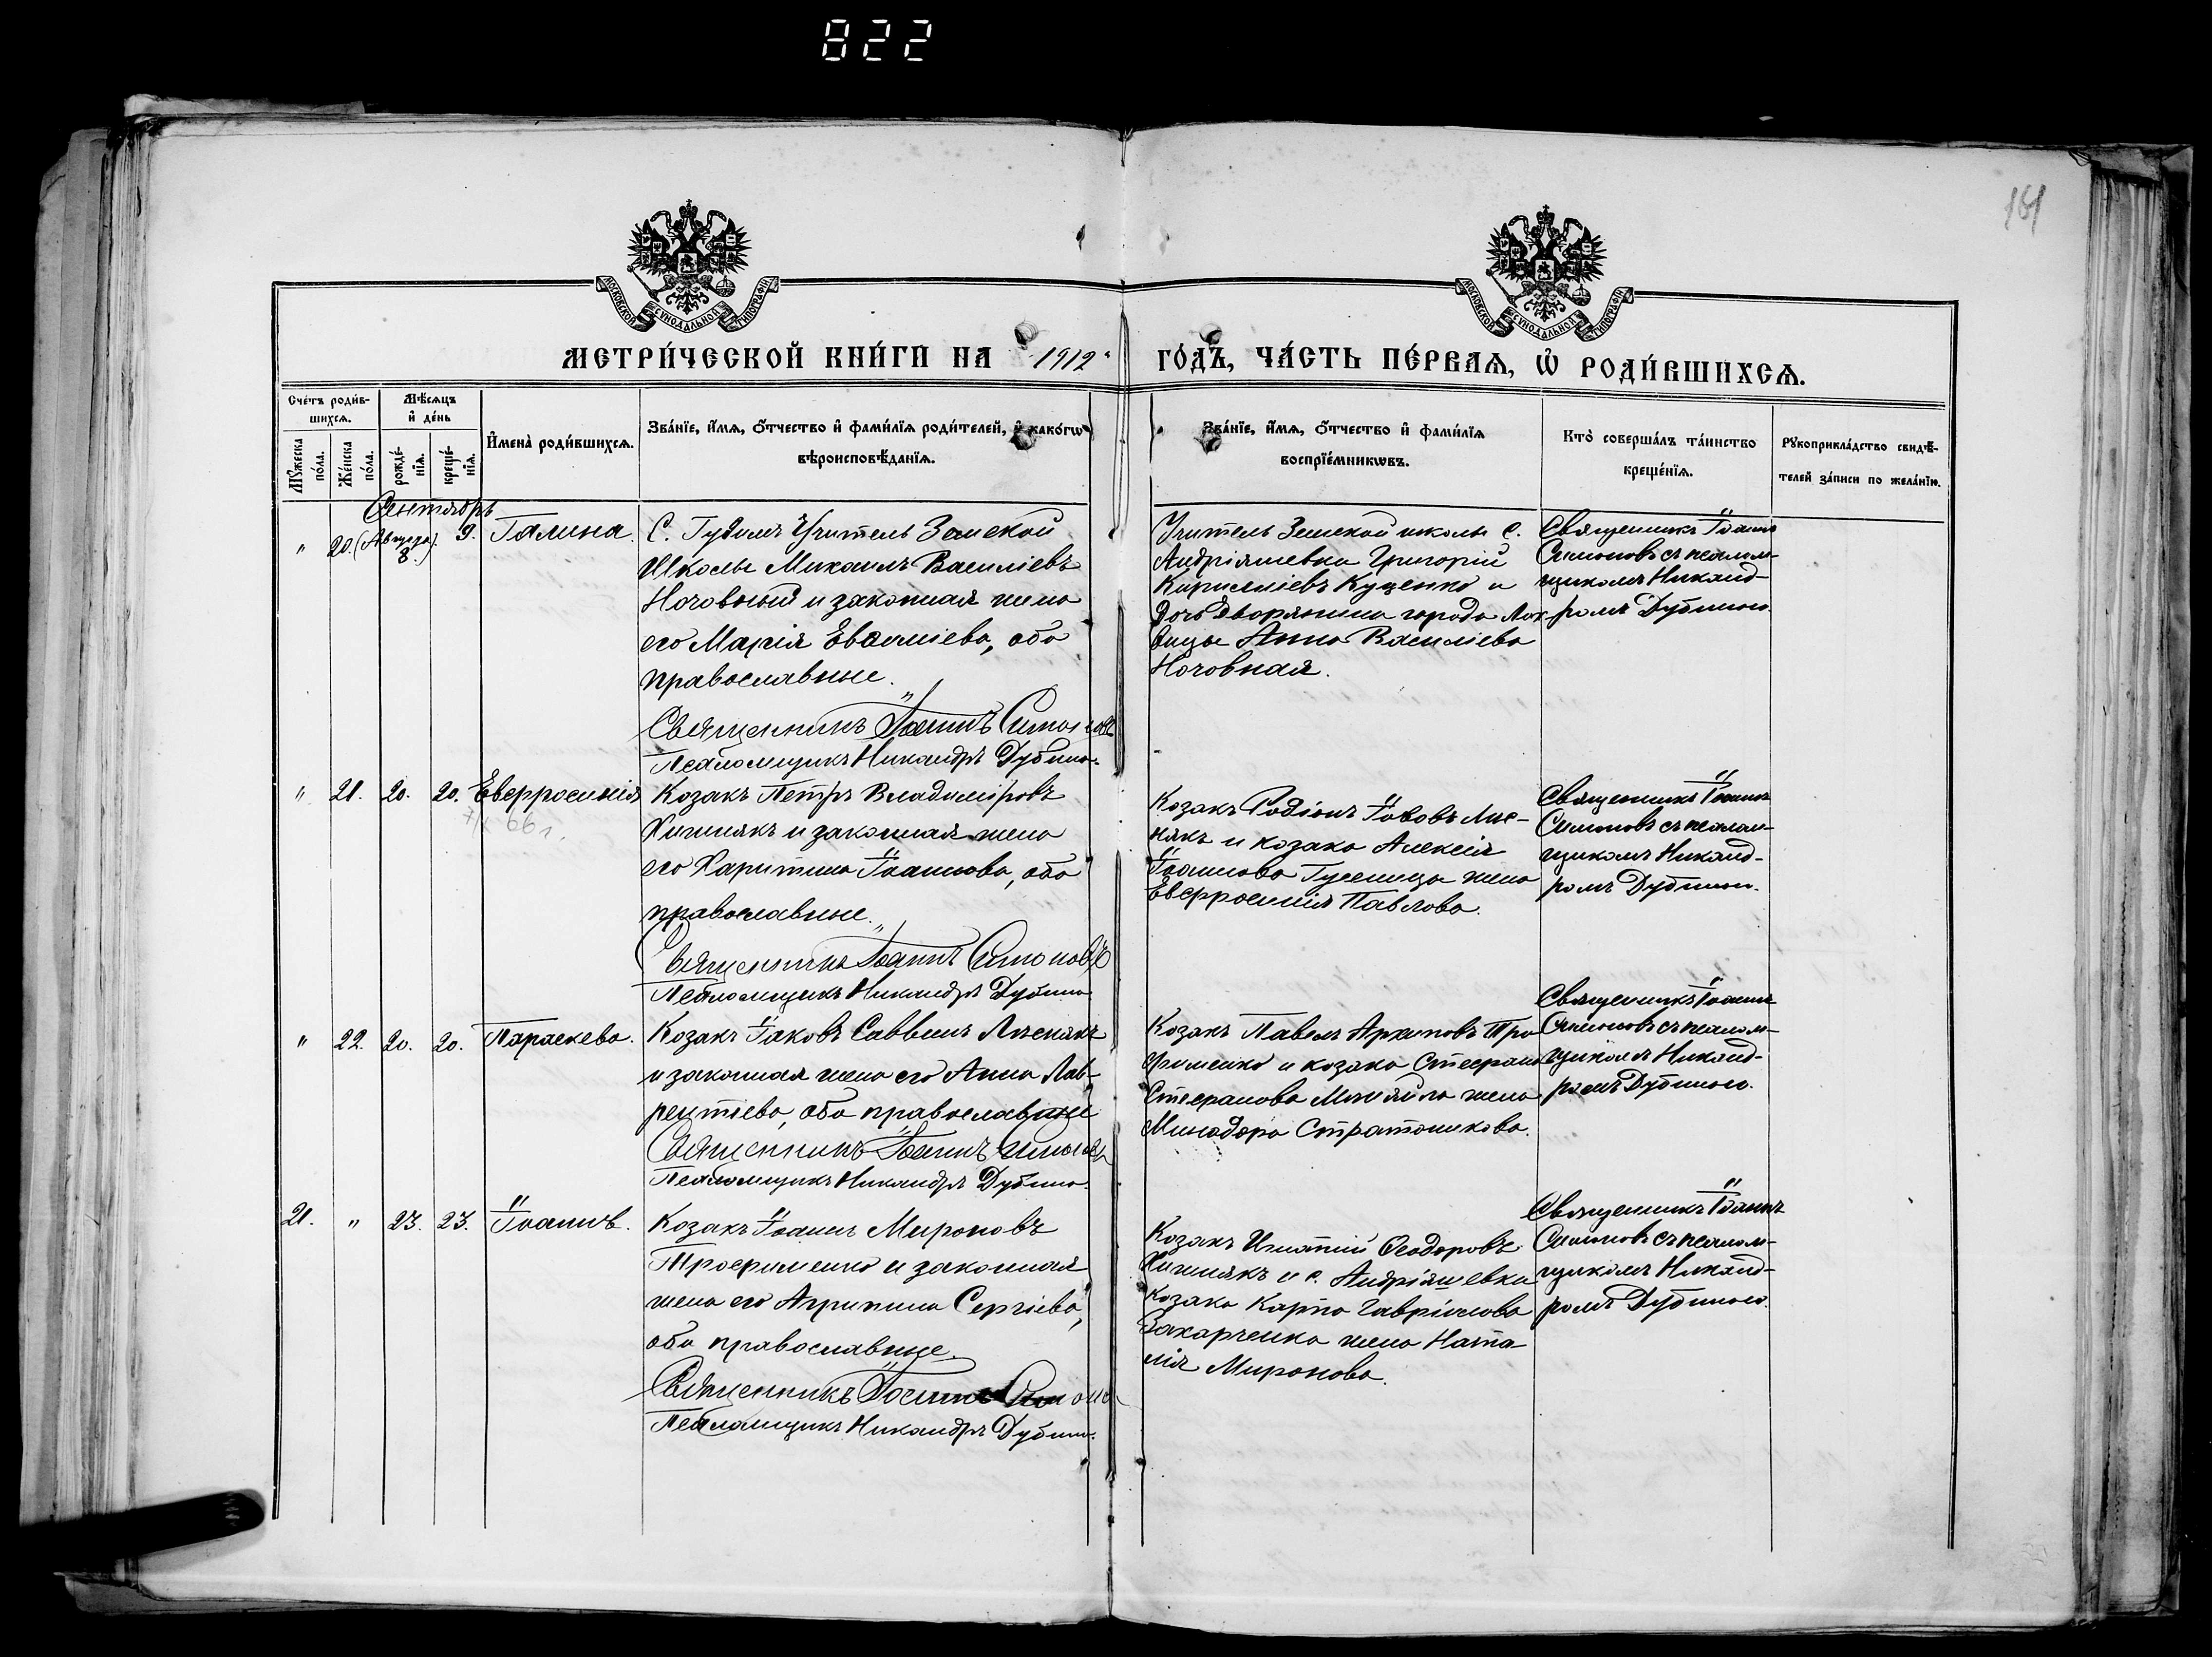 822
161
МОСКОВСКОЙ СѴНОДАЛЬНОЙ ТИПОГРАФІИ
МОСКОВСКОЙ СѴНОДАЛЬНОЙ ТИПОГРАФІИ
МЕТРИ́ЧЕСКОЙ КНИ́ГИ НА 1912 ГО́ДЪ, ЧА́СТЬ ПЕ́РВАѦ, Ѡ҆ РОДИ́ВШИХСѦ.
Сче́тъ роди́в-
шихсѧ.
Мѣ́сѧцъ
и҆ де́нь
Мꙋ́жеска
по́ла.
Же́нска
по́ла.
рожде́-
нїѧ.
креще́-
нїѧ.
И҆мена̀ роди́вшихсѧ.
Зва́нїе, и҆́мѧ, ѻ҆́тчество и҆ фами́лїѧ роди́телей, и҆ како́гѡ
вѣроисповѣ́данїѧ.
Зва́нїе, и҆́мѧ, ѻ҆́тчество и҆ фами́лїѧ
воспрїе́мникѡвъ.
Кто̀ соверша́лъ та́инство
креще́нїѧ.
Рꙋкоприкла́дство свидѣ́-
телей за́писи по жела́нїю.
Сентябрь
" 20. (Августа 8.) 9. Галина.
С. Гудимъ Учитель Земской
Школы Михаилъ Василіевъ
Ночовный и законная жена
его Марія Евсиміева, оба
православные.
Священникъ Іоаннъ Симоновъ
Псаломщикъ Никандръ Дубина.
Учитель Земской школы с.
Андріяшевки Григорій
Кирилліевъ Куценко и
дочь дворянина города Лох-
вицы Анна Василіева
Ночовная.
Священникъ Іоаннъ
Симоновъ съ псалом-
щикомъ Никанд-
ромъ Дубиною.
" 21. 20. 20. Евфросинія
66 г.
Козакъ Петръ Владиміровъ
Хижнякъ и законная жена
его Харитина Іоаннова, оба
православные.
Священникъ Іоаннъ Симоновъ
Псаломщикъ Никандръ Дубина
Козакъ Родіонъ Іововъ Лис-
някъ и козака Алексія
Іоаннова Гусеницы жена
Евфросинія Павлова.
Священникъ Іоаннъ
Симоновъ съ псалом-
щикомъ Никанд-
ромъ Дубиною.
" 22. 20. 20. Параскева.
Козакъ Іаковъ Саввинъ Лиснякъ
и законная жена его Анна Лав-
рентіева, оба православные
Священникъ Іоаннъ Симоновъ
Псаломщикъ Никандръ Дубина.
Козакъ Павелъ Архиповъ Тро-
фименко и козака Стефана
Стефанова жена
Минодора Стратоникова.
Священникъ Іоаннъ
Симоновъ съ псалом-
щикомъ Никанд-
ромъ Дубиною.
21. " 23. 23. Іоаннъ.
Козакъ Іоаннъ Мироновъ
Трофименко и законная
жена его Агрипина Сергіева,
оба православные.
Священникъ Іоаннъ Симоно
Псаломщикъ Никандръ Дубина.
Козакъ Игнатій Ѳеодоровъ
Хижнякъ и с. Андріяшевки
козака Карпа Гавріилова
Захарченка жена Ната-
лія Миронова.
Священникъ Іоаннъ
Симоновъ съ псалом-
щикомъ Никанд-
ромъ Дубиною.